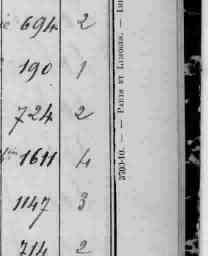 694 2
190 1
724 2
1611 4
1147 3
714 2
3703-10. — PARIS ET LIMOGES. —